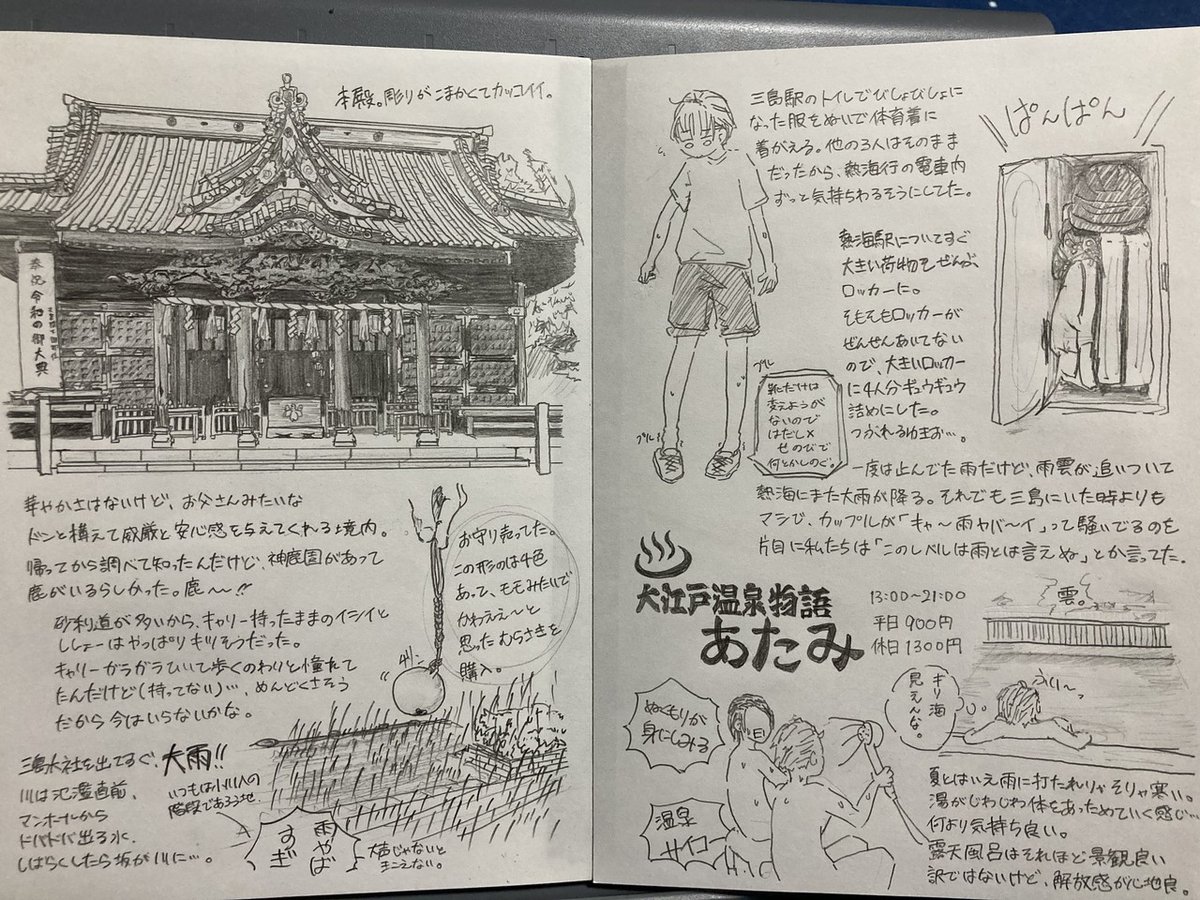 本殿。彫りがこまかくてカッコイイ。
奉祝令和の御大典
華やかさはないけど、お父さんみたいな
ドンと構えて威厳と安心感を与えてくれる境内。
帰ってから調べて知ったんだけど、神鹿園があって
鹿がいるらしかった。鹿〜!!
砂利道が多いから、キャリー持ったままのイシイと
ししょーはやっぱりキツそうだった。
キャリーガラガラひいて歩くのわりと憧れて
たんだけど(持ってない)…、めんどくさそう
だから今はいらないかな。
お守り売ってた。
この形のは4色
あって、モモみたいで
かわええ〜と
思ったむらさきを
購入。
三島大社を出てすぐ、大雨!!
川は氾濫直前、
マンホールから
ドバドバ出る水、
しばらくしたら坂が川に…。
いつもは小川への
階段であろう地
雨やば
すぎ
大声じゃないと
きこえない。
三島駅のトイレでびしょびしょに
なった服をぬいで体育着に
着がえる。他の3人はそのまま
だったから、熱海行の電車内
ずっと気持ちわるそうにしてた。
ぱんぱん
熱海駅についてすぐ
大きい荷物をぜんぶ
ロッカーに。
そもそもロッカーが
ぜんぜんあいてない
ので、大きいロッカー
に4人分ギュウギュウ
詰めにした。
つぶれるゆきお…。
プル
プル
靴だけは
変えようが
ないので
はだし×
せのびで
何とかしのぐ。
一度は止んでた雨だけど、雨雲が追いついて
熱海にまた大雨が降る。それでも三島にいた時よりも
マシで、カップルが「キャ〜雨ヤバ〜イ」って騒いでるのを
片目に私たちは「このレベルは雨とは言えぬ」とか言ってた。
大江戸温泉物語
あたみ
13:00~21:00
平日 900円
休日 1300円
雲。
ギリ海
見えんな。
ふい〜っ
ぬくもりが
身にしみる
温泉
サイコー
夏とはいえ雨に打たれりゃそりゃ寒い。
湯がじわじわ体をあっためていく感じ…
何より気持ち良い。
露天風呂はそれほど景観良い
訳ではないけど、解放感が心地良。